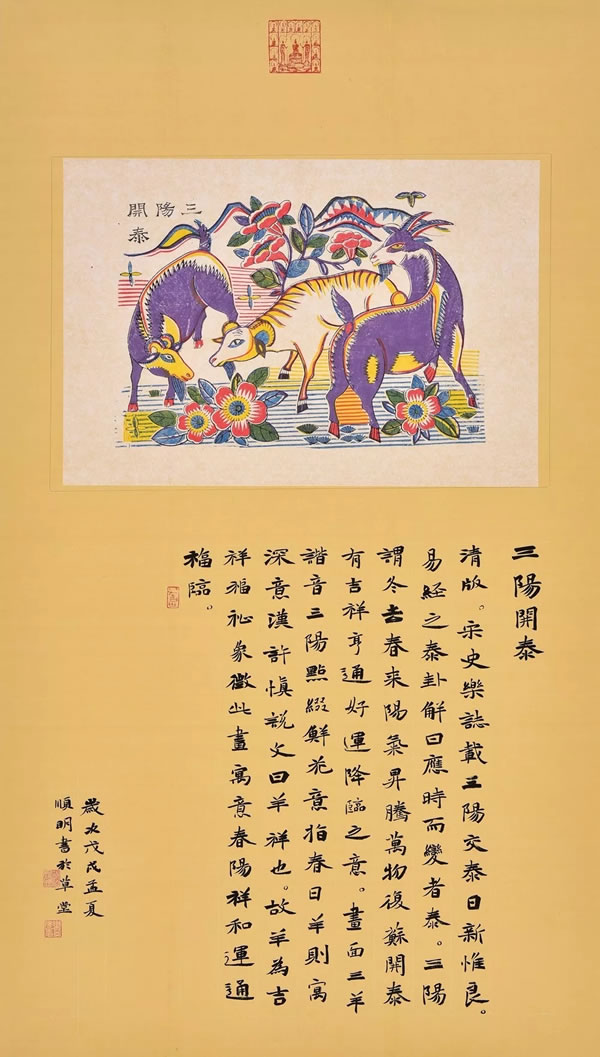 三陽開
泰
三陽開泰
清版。宋史樂誌載三陽交泰日新惟良。
易經之泰卦解曰應時而變者泰。三陽
謂冬去春来陽氣昇騰萬物復蘇開泰
有吉祥亨通好運降臨之意。畫面三羊
諧音三陽點綴鮮花意指春日羊則寓
深意漢許慎説文曰羊祥也。故羊為吉
祥福祉象徵此畫寓意春陽祥和運通
福臨。
歲次戊戌孟夏
順明書於草堂